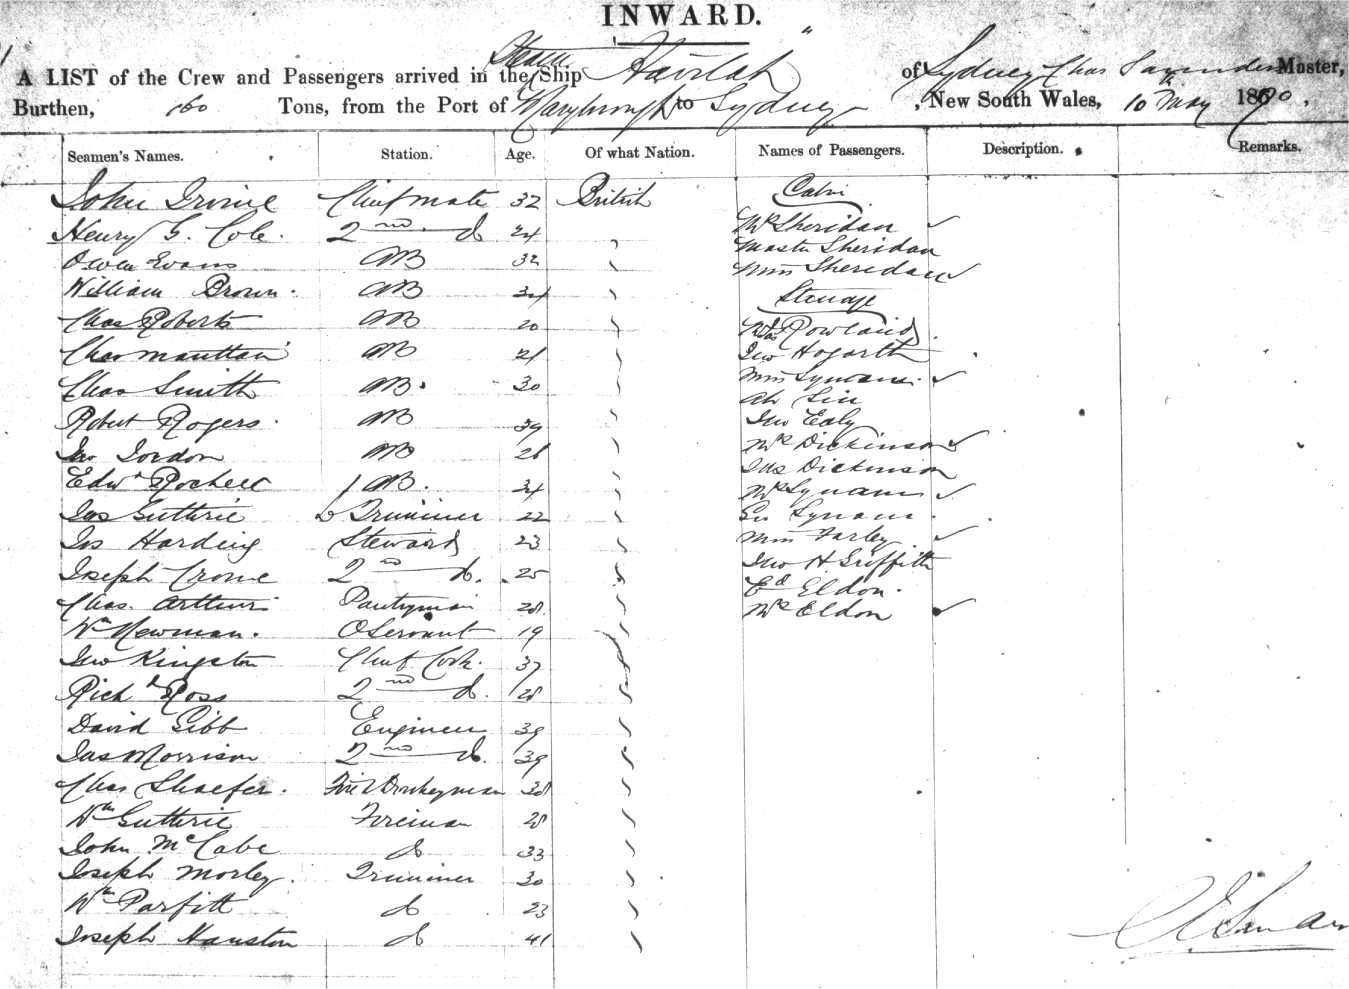 INWARD.
A LIST of the Crew and Passengers arrived in the Steam Ship "Havilah" of Sydney Chas Saunders Master,
Burthen, Tons, from the Port of Maryborough to Sydney, New South Wales, 10th May 1870,
Seamen's Names. Station. Age. Of what Nation. Names of Passengers. Description. Remarks.
John Irvine Chief mate 32 British Cabin
Henry G. Cole. 2nd do 24 Mr Sheridan
Owen Evans AB 32 Master Sheridan
William Brown. AB 34 Miss Sheridan
Steerage
Chas Roberts AB 20 Rowland
Chas AB 21 Jno Hogarth
Chas Smith AB. 30 Miss
Ah Sin
Robert Rogers. AB 39 Jno Ealy
Jno AB 26 Mrs Dickinson
Jas Dickinson
Edwd AB. 34 Mrs
Jas Guthrie Trimmer 22
Jas Harding Steward 23 Miss Farley
Joseph Crowe 2nd do. 25 Jno H Griffith
Ed Eldon.
Chas. Arthur Pantryman 28 Mrs Eldon
Wm Newman. O Servant 19
Jno Kingston Chief Cook. 37
Richd Ross 2nd do. 28
David Gibb Engineer 39
Jas Morrison 2nd do. 39
Chas Shaefer. Donkeyman 38
Wm Guthrie Fireman 28
John McCabe do 33
Joseph Morley. Trimmer 30
Wm Parfitt do 23
Joseph Hauston do 41